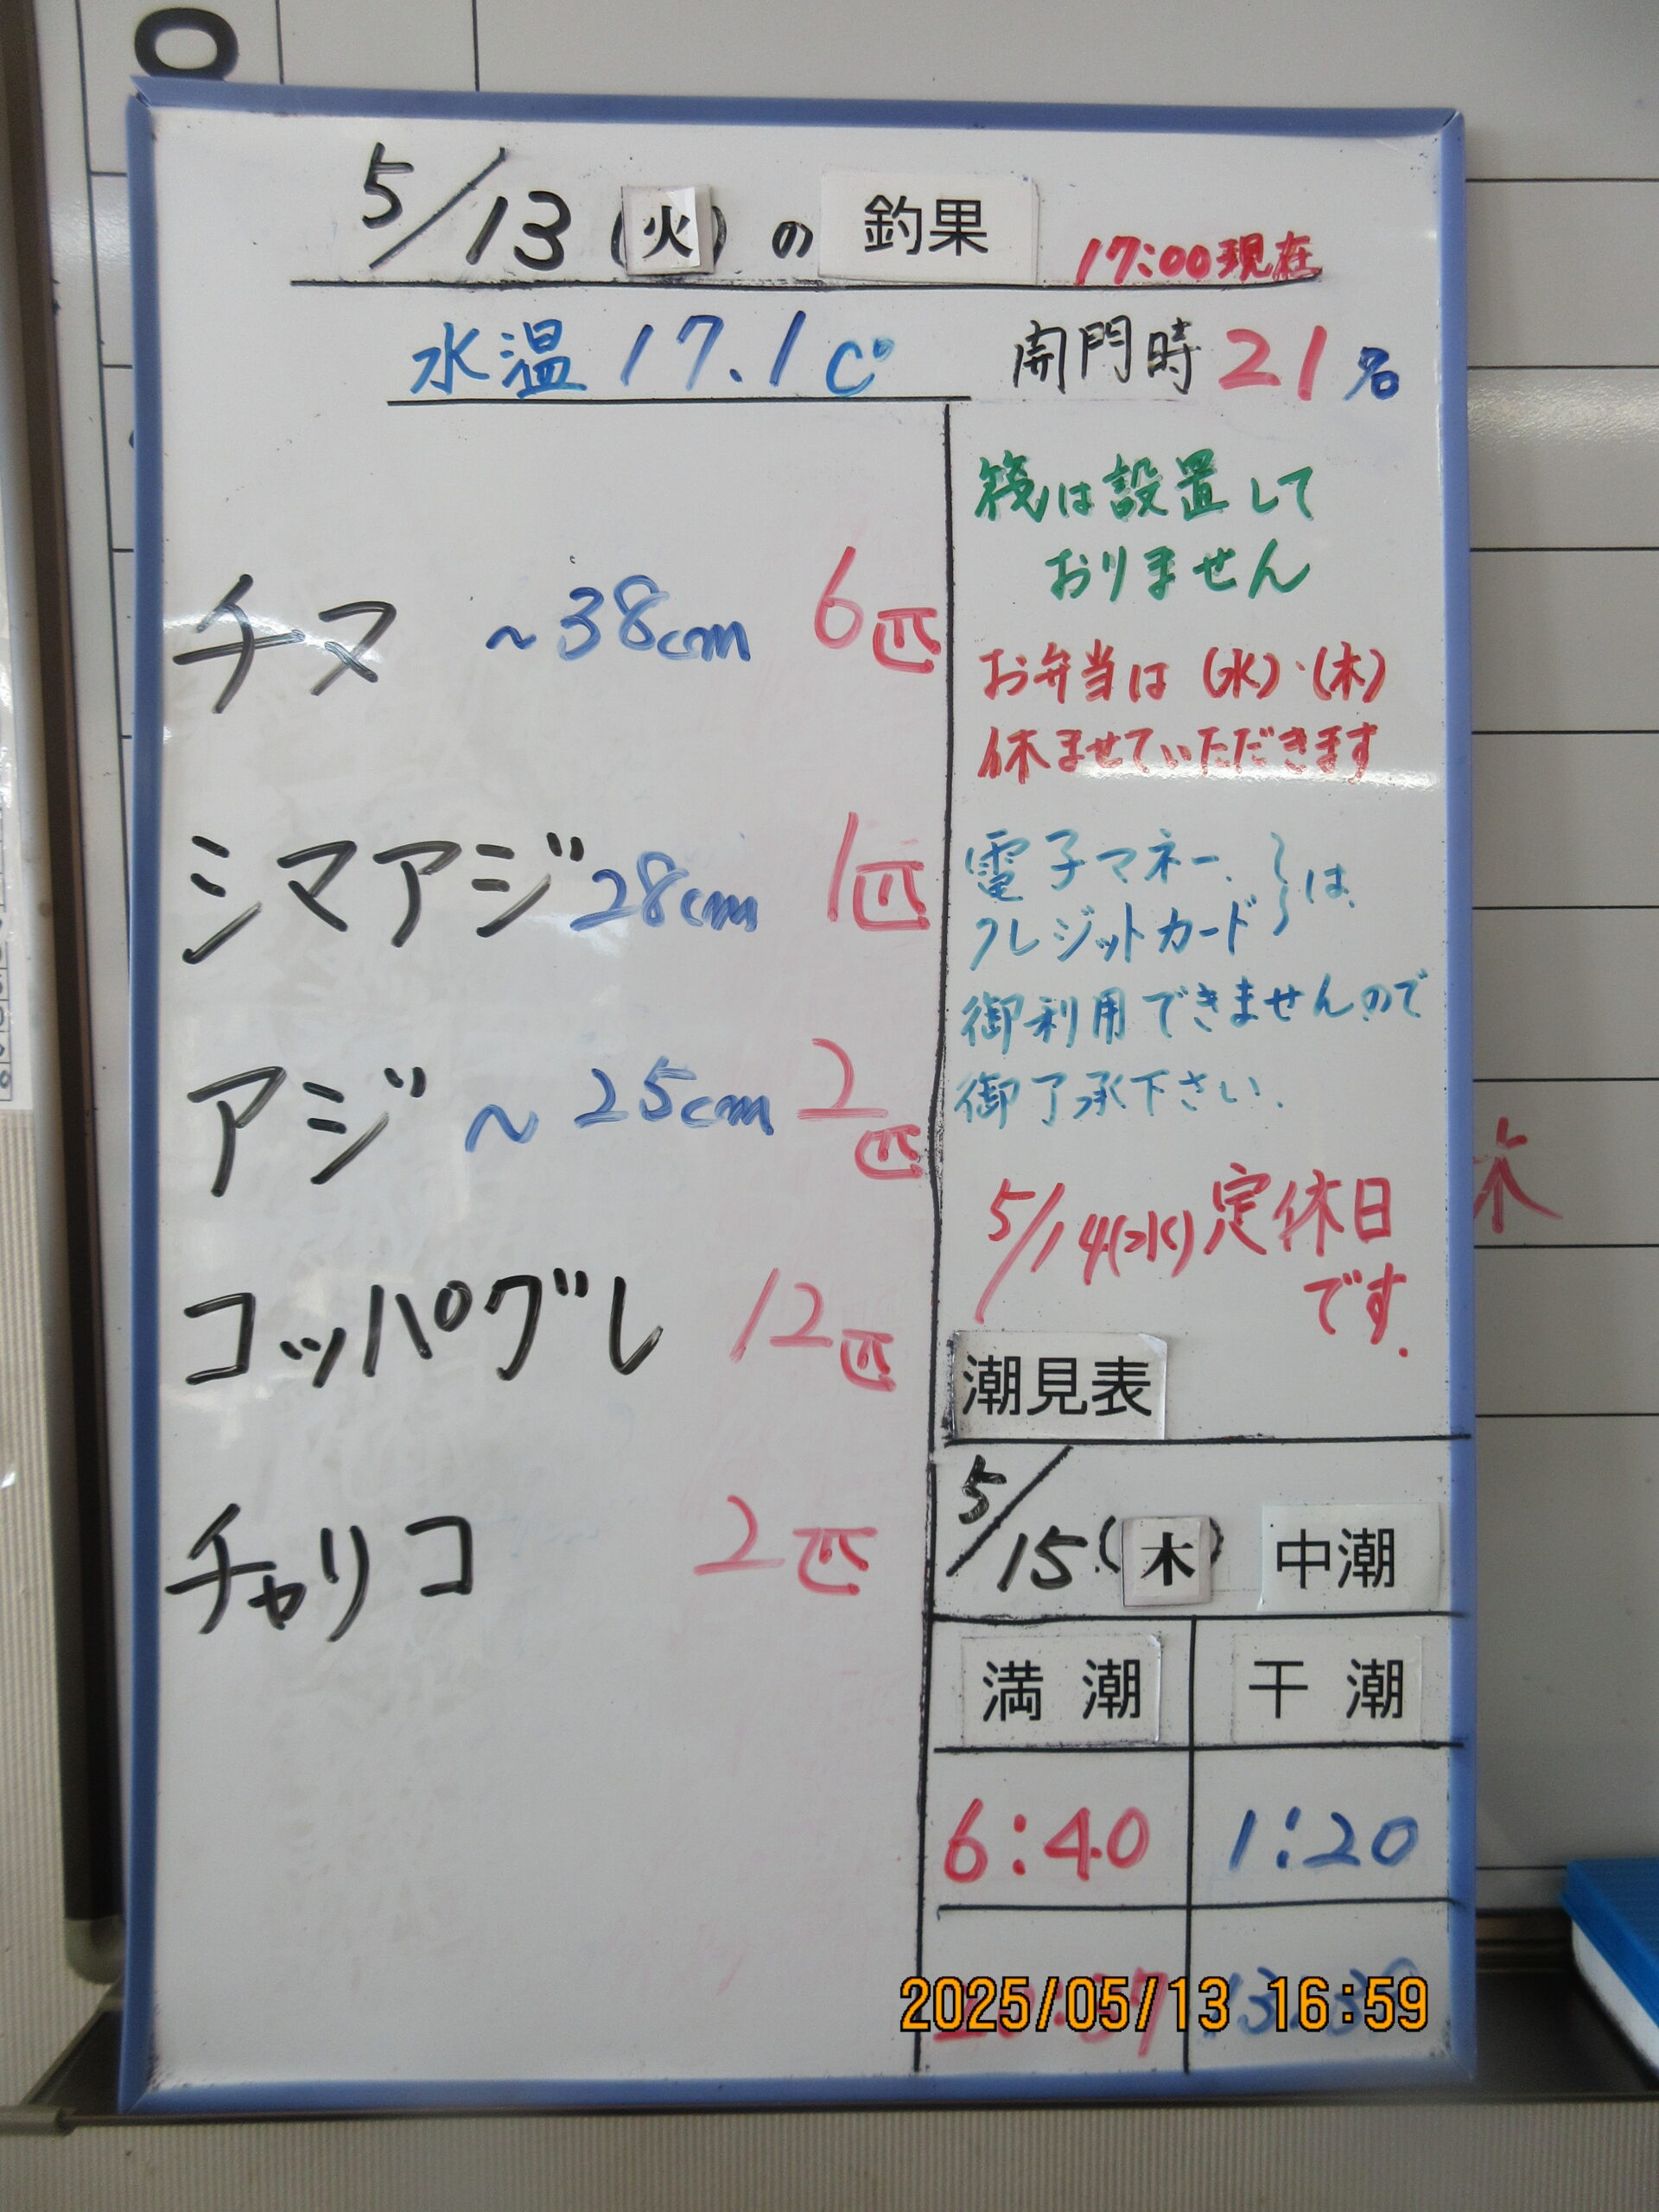 5/13(火)の釣果 17:00現在
水温 17.1C° 開門時 21名
チヌ ~38cm 6匹
シマアジ 28cm 1匹
アジ ~25cm 2匹
コッパグレ 12匹
チャリコ 2匹
筏は設置して
おりません
お弁当は(水)・(木)
休ませていただきます
電子マネー、
クレジットカード は、
御利用できませんので
御了承下さい.
5/14(水)定休日
です.
潮見表
5/15(木) 中潮
満潮 干潮
6:40 1:20
2025/05/13 16:59
木